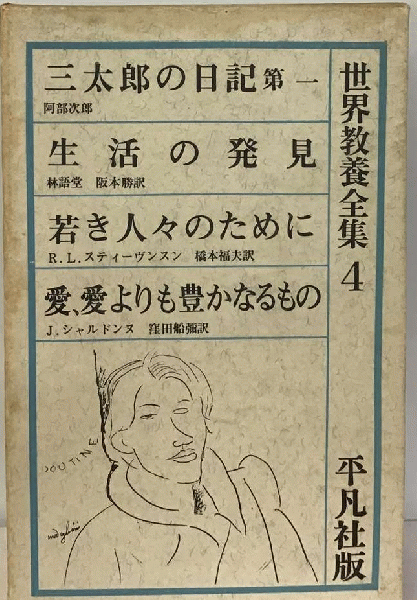 三太郎の日記 第一
阿部次郎
生活の発見
林語堂 阪本勝訳
若き人々のために
R.L.スティーヴンスン 橋本福夫訳
愛、愛よりも豊かなるもの
J.シャルドンヌ 窪田船彌訳
世界教養全集 4
平凡社版